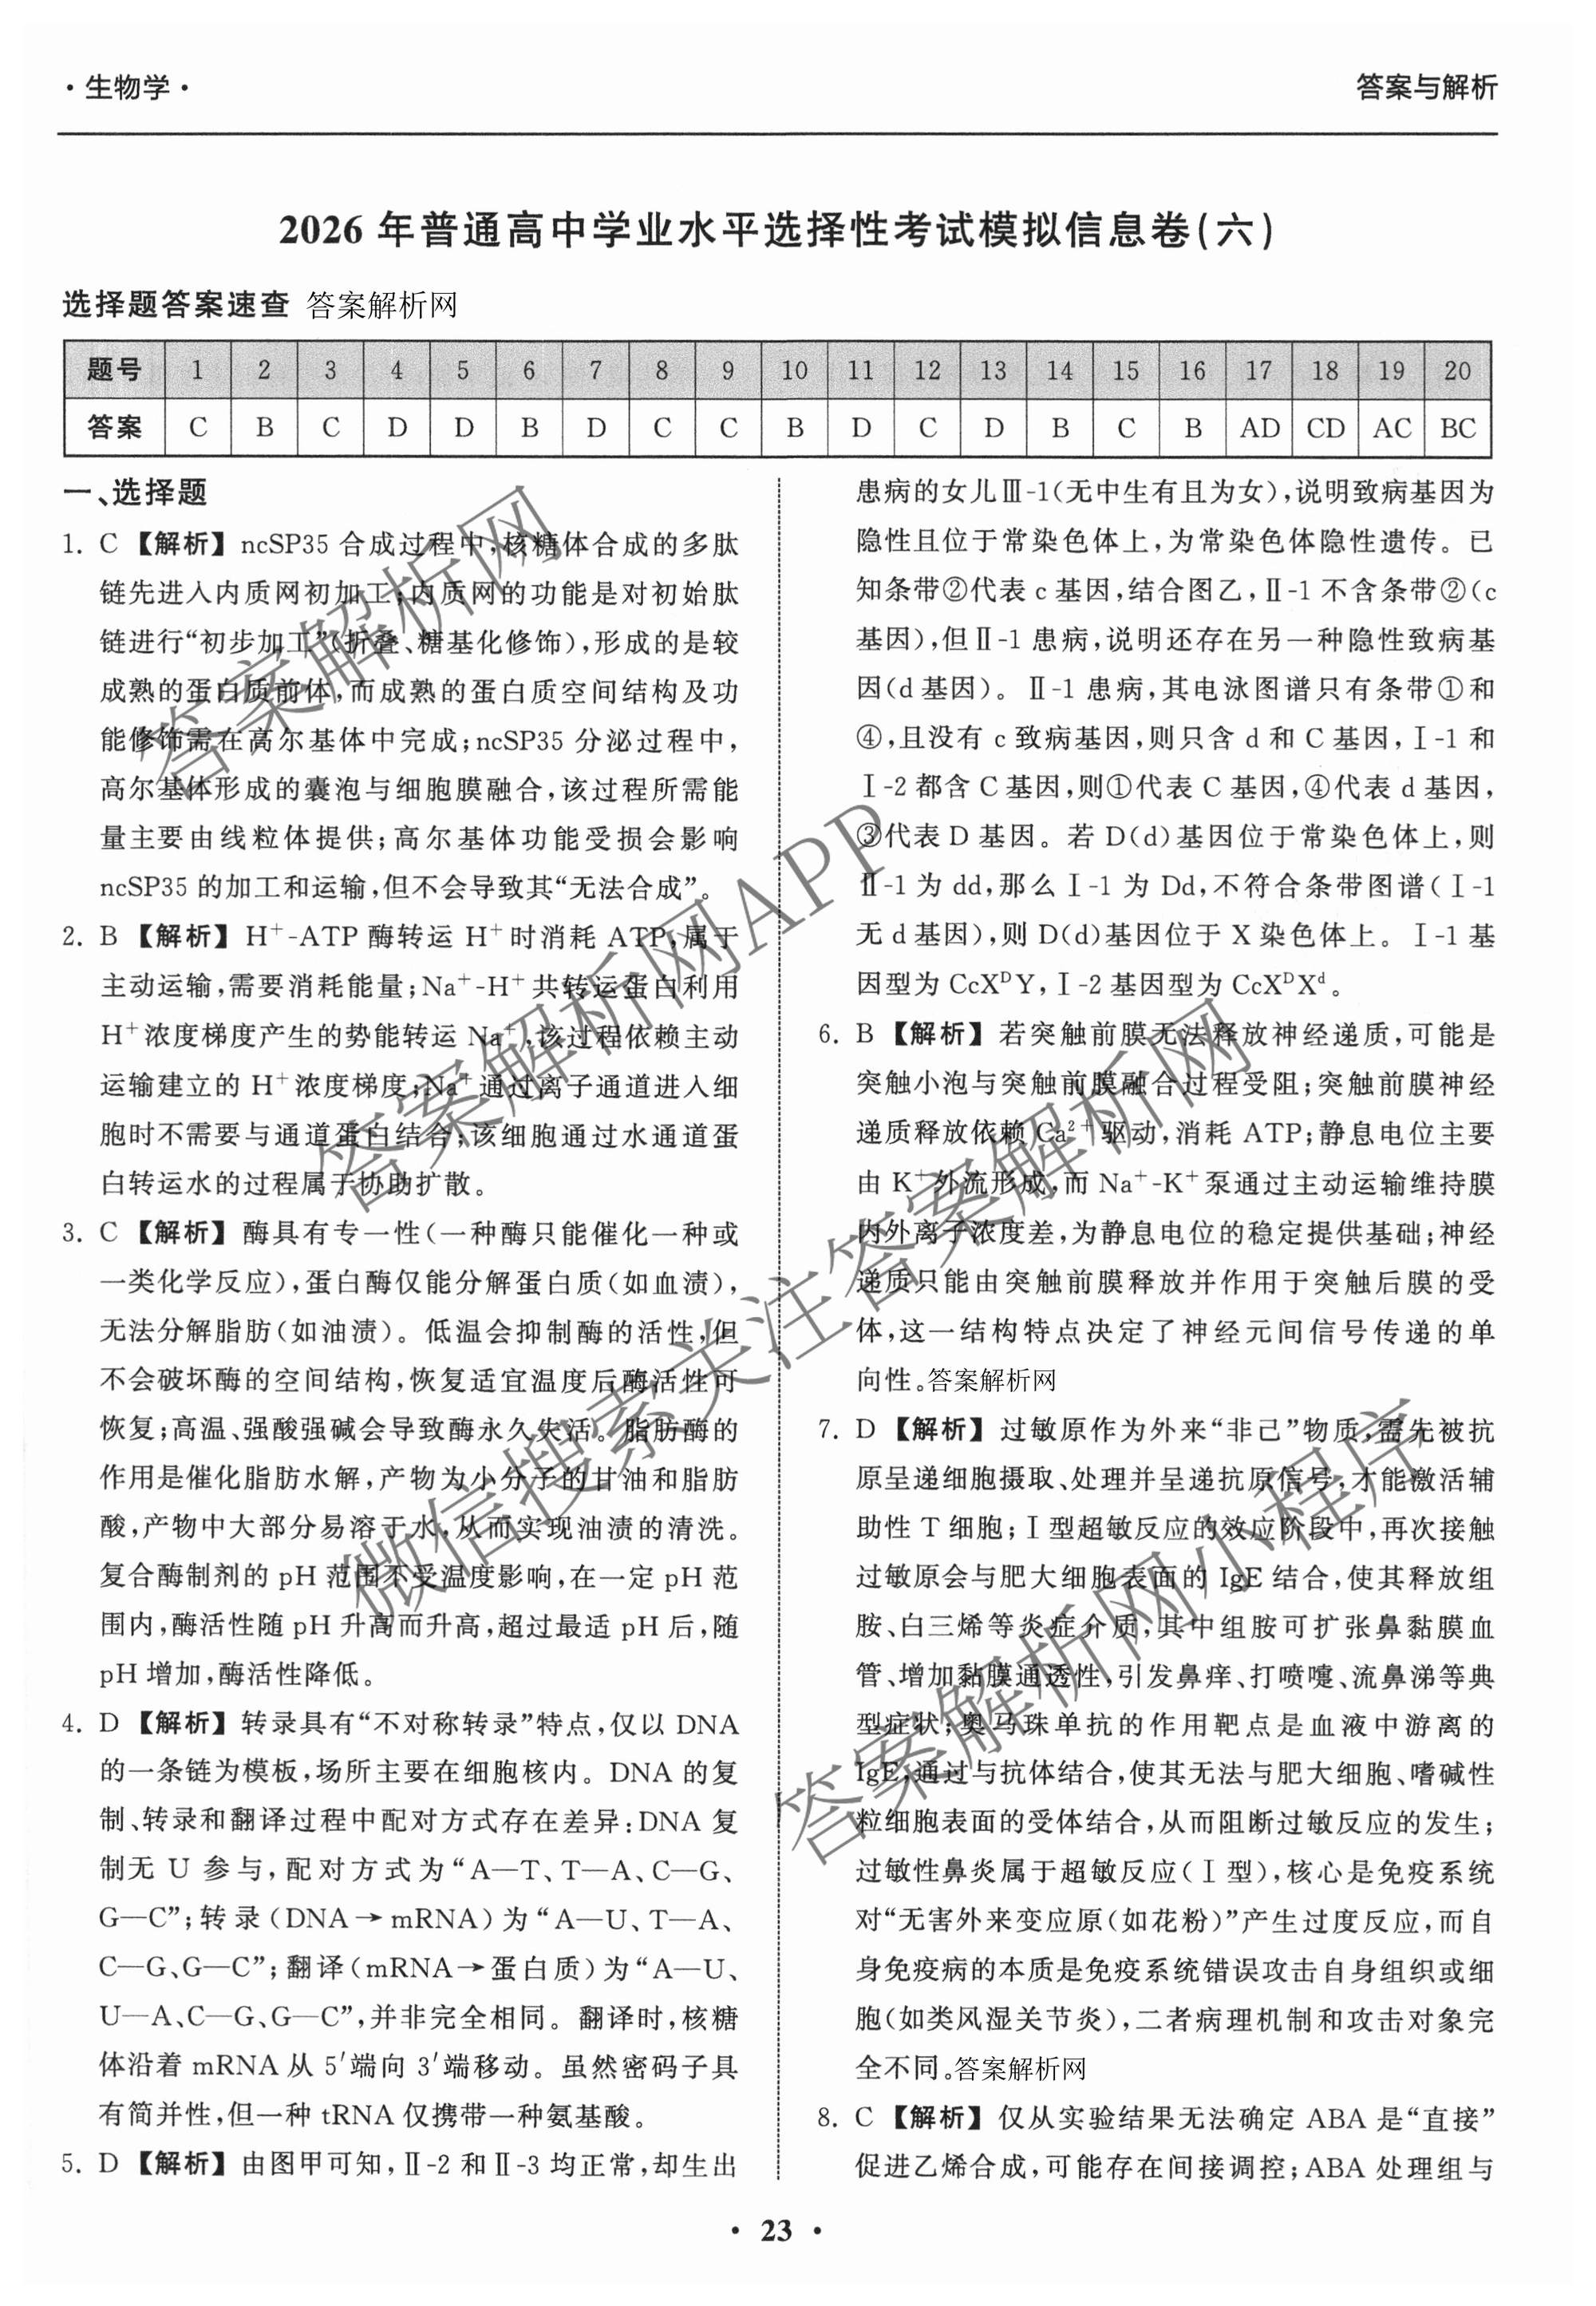 ·生物学·
答案与解析
2026 年普通高中学业水平选择性考试模拟信息卷(六)
选择题答案速查 答案解析网
题号 1 2 3 4 5 6 7 8 9 10 11 12 13 14 15 16 17 18 19 20
答案 C B C D D B D C C B D C D B C B AD CD AC BC
一、选择题
1. C 【解析】ncSP35 合成过程中,核糖体合成的多肽
链先进入内质网初加工;内质网的功能是对初始肽
链进行“初步加工”(折叠、糖基化修饰),形成的是较
成熟的蛋白质前体,而成熟的蛋白质空间结构及功
能修饰需在高尔基体中完成;ncSP35 分泌过程中,
高尔基体形成的囊泡与细胞膜融合,该过程所需能
量主要由线粒体提供;高尔基体功能受损会影响
ncSP35 的加工和运输,但不会导致其“无法合成”。
2. B 【解析】H⁺-ATP 酶转运 H⁺时消耗 ATP,属于
主动运输,需要消耗能量;Na⁺-H⁺共转运蛋白利用
H⁺浓度梯度产生的势能转运 Na⁺,该过程依赖主动
运输建立的 H⁺浓度梯度;Na⁺通过离子通道进入细
胞时不需要与通道蛋白结合;该细胞通过水通道蛋
白转运水的过程属于协助扩散。
3. C 【解析】酶具有专一性(一种酶只能催化一种或
一类化学反应),蛋白酶仅能分解蛋白质(如血渍),
无法分解脂肪(如油渍)。低温会抑制酶的活性,但
不会破坏酶的空间结构,恢复适宜温度后酶活性可
恢复;高温、强酸强碱会导致酶永久失活。脂肪酶的
作用是催化脂肪水解,产物为小分子的甘油和脂肪
酸,产物中大部分易溶于水,从而实现油渍的清洗。
复合酶制剂的 pH 范围不受温度影响,在一定 pH 范
围内,酶活性随 pH 升高而升高,超过最适 pH 后,随
pH 增加,酶活性降低。
4. D 【解析】转录具有“不对称转录”特点,仅以 DNA
的一条链为模板,场所主要在细胞核内。DNA 的复
制、转录和翻译过程中配对方式存在差异:DNA 复
制无 U 参与,配对方式为“A—T、T—A、C—G、
G—C”;转录(DNA→mRNA)为“A—U、T—A、
C—G、G—C”;翻译(mRNA→蛋白质)为“A—U、
U—A、C—G、G—C”,并非完全相同。翻译时,核糖
体沿着 mRNA 从 5′端向 3′端移动。虽然密码子具
有简并性,但一种 tRNA 仅携带一种氨基酸。
5. D 【解析】由图甲可知,Ⅱ-2 和Ⅱ-3 均正常,却生出
患病的女儿Ⅲ-1(无中生有且为女),说明致病基因为
隐性且位于常染色体上,为常染色体隐性遗传。已
知条带②代表 c 基因,结合图乙,Ⅱ-1 不含条带②(c
基因),但Ⅱ-1 患病,说明还存在另一种隐性致病基
因(d 基因)。Ⅱ-1 患病,其电泳图谱只有条带①和
④,且没有 c 致病基因,则只含 d 和 C 基因,Ⅰ-1 和
Ⅰ-2 都含 C 基因,则①代表 C 基因,④代表 d 基因,
③代表 D 基因。若 D(d)基因位于常染色体上,则
Ⅱ-1 为 dd,那么Ⅰ-1 为 Dd,不符合条带图谱(Ⅰ-1
无 d 基因),则 D(d)基因位于 X 染色体上。Ⅰ-1 基
因型为 CcXᴰY,Ⅰ-2 基因型为 CcXᴰXᵈ。
6. B 【解析】若突触前膜无法释放神经递质,可能是
突触小泡与突触前膜融合过程受阻;突触前膜神经
递质释放依赖 Ca²⁺驱动,消耗 ATP;静息电位主要
由 K⁺外流形成,而 Na⁺-K⁺泵通过主动运输维持膜
内外离子浓度差,为静息电位的稳定提供基础;神经
递质只能由突触前膜释放并作用于突触后膜的受
体,这一结构特点决定了神经元间信号传递的单
向性。答案解析网
7. D 【解析】过敏原作为外来“非己”物质,需先被抗
原呈递细胞摄取、处理并呈递抗原信号,才能激活辅
助性 T 细胞;Ⅰ型超敏反应的效应阶段中,再次接触
过敏原会与肥大细胞表面的 IgE 结合,使其释放组
胺、白三烯等炎症介质,其中组胺可扩张鼻黏膜血
管、增加黏膜通透性,引发鼻痒、打喷嚏、流鼻涕等典
型症状;奥马珠单抗的作用靶点是血液中游离的
IgE,通过与抗体结合,使其无法与肥大细胞、嗜碱性
粒细胞表面的受体结合,从而阻断过敏反应的发生;
过敏性鼻炎属于超敏反应(Ⅰ型),核心是免疫系统
对“无害外来变应原(如花粉)”产生过度反应,而自
身免疫病的本质是免疫系统错误攻击自身组织或细
胞(如类风湿关节炎),二者病理机制和攻击对象完
全不同。答案解析网
8. C 【解析】仅从实验结果无法确定 ABA 是“直接”
促进乙烯合成,可能存在间接调控;ABA 处理组与
· 23 ·
答案解析网
答案解析网APP
微信搜索关注答案解析网
答案解析网小程序